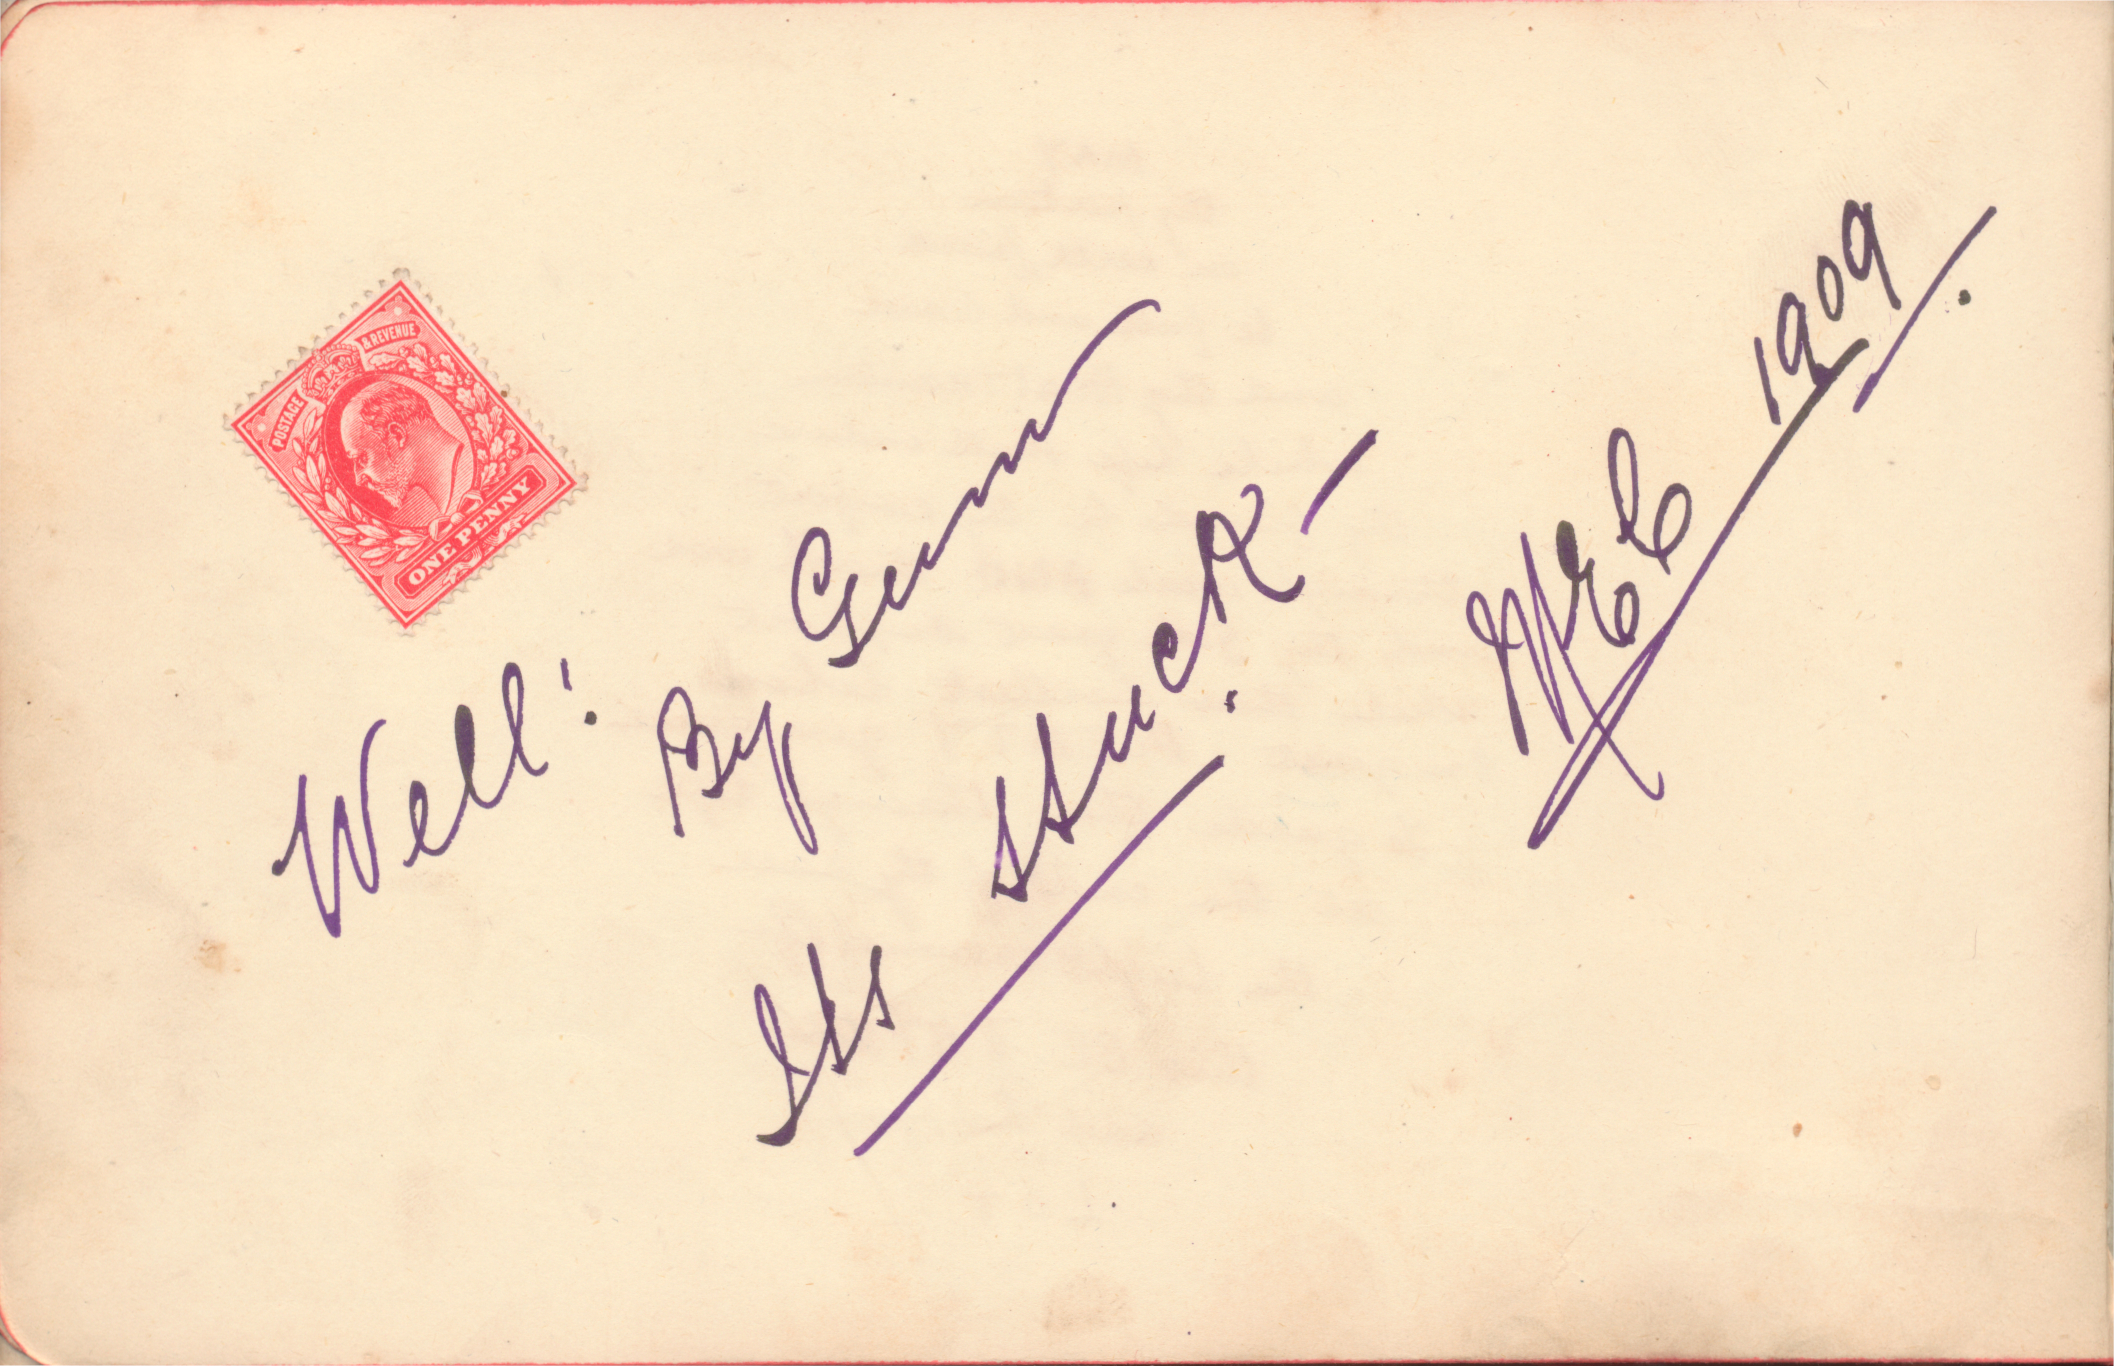 POSTAGE & REVENUE
ONE PENNY
Well!
By Gum
Its stuck—
1909.